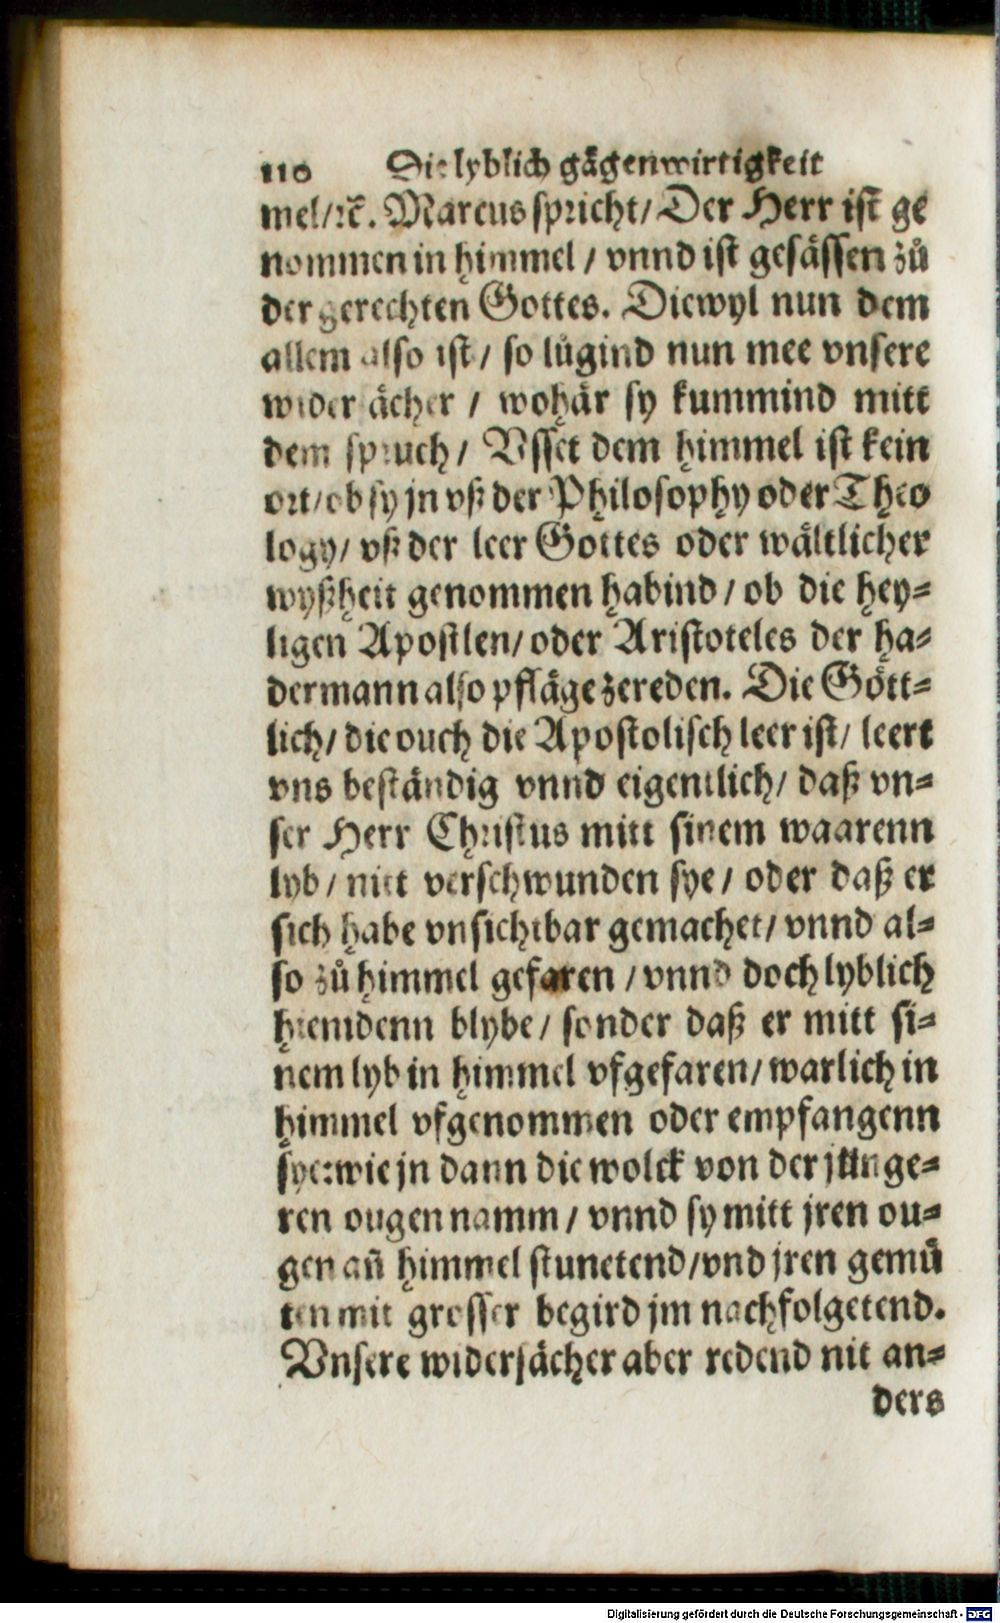 110 Die lyblich gägenwirtigkeit
mel/ꝛc̃. Marcus spricht/ Der Herr ist ge
nommen in himmel / vnnd ist gesässen zů
der gerechten Gottes. Diewyl nun dem
allem also ist / so lůgind nun mee vnsere
widersächer / wohär sy kummind mitt
dem spruch / Vsset dem himmel ist kein
ort/ob sy jn vß der Philosophy oder Theo
logy/ vß der leer Gottes oder wältlicher
wyßheit genommen habind / ob die hey-
ligen Apostlen/oder Aristoteles der ha-
dermann also pfläge zereden. Die Gött-
lich/ die ouch die Apostolisch leer ist/ leert
vns beständig vnnd eigentlich/ daß vn-
ser Herr Christus mitt sinem waarenn
lyb / nitt verschwunden sye / oder daß er
sich habe vnsichtbar gemachet/ vnnd al-
so zů himmel gefaren / vnnd doch lyblich
hiemdenn blybe / sonder daß er mitt si-
nem lyb in himmel vfgefaren/ warlich in
himmel vfgenommen oder empfangenn
sye:wie jn dann die wolck von der jünge-
ren ougen namm / vnnd sy mitt jren ou-
gen añ himmel stunetend/vnd jren gemů
ten mit grosser begird jm nachfolgetend.
Vnsere widersächer aber redend nit an-
ders
Digitalisierung gefördert durch die Deutsche Forschungsgemeinschaft - DFG